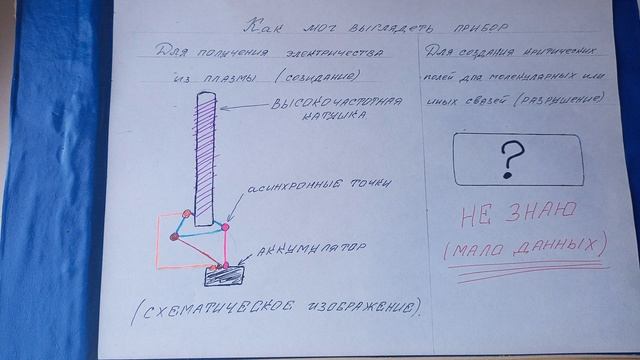 Как мог выглядеть прибор
Для получения электричества
из плазмы (созидание)
высокочастотная
катушка
асинхронные точки
аккумулятор
(схематическое изображение).
Для создания критических
полей для молекулярных или
иных связей (разрушение)
?
НЕ ЗНАЮ
(МАЛО ДАННЫХ)